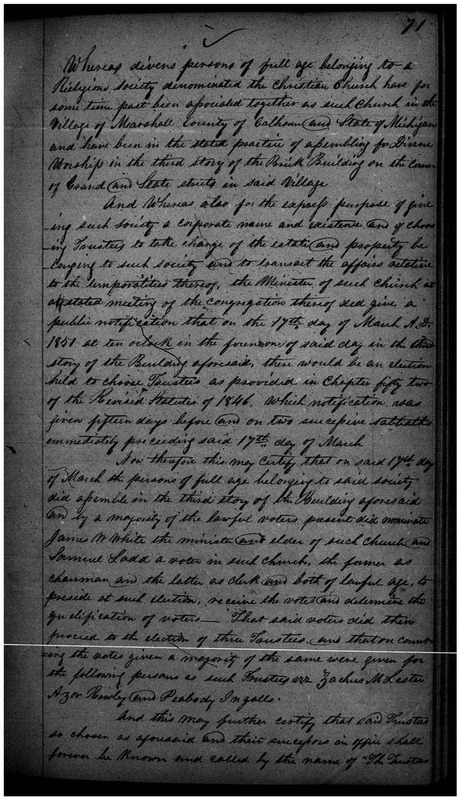 71
Whereas divers persons of full age belonging to a
Religious Society denominated the Christian Church have for
some time past been associated together as such Church in the
Village of Marshall County of Calhoun and State of Michigan
and have been in the stated practice of assembling for Divine
Worship in the third story of the Brick Building on the corner
of Grand and State streets in said Village
And Whereas also for the express purpose of giv-
ing such society a corporate name and existence and of choos
ing Trustees to take charge of the estate and property be
longing to such society and to transact the affairs relative
to the temporalities thereof, the Minister of such Church at
a stated meeting of the congregation thereof did give a
public notification that on the 17th day of March A.D.
1851 at ten oclock in the forenoon of said day in the third
story of the Building aforesaid, there would be an election
held to choose Trustees as provided in Chapter fifty two
of the Revised Statutes of 1846. Which notification was
given fifteen days before and on two successive sabbaths
immediately preceeding said 17th day of March
Now therefore this may certify that on said 17th day
of March the persons of full age belonging to said society
did assemble in the third story of the Building aforesaid
and by a majority of the lawful voters present did nominate
James W White the minister and elder of such Church and
Samuel Ladd a voter in such church, the former as
chairman and the latter as clerk and both of lawful age, to
preside at such election, receive the votes and determine the
qualification of voters — That said voters did then
proceed to the election of three Trustees, and that on count-
ing the votes given a majority of the same were given for
the following persons as such Trustees viz Zachius M Lester
Azor Rowley and Peabody Ingalls.
And this may further certify that said Trustees
so chosen as aforesaid and their successors in office shall
forever be Known and called by the name of "The Trustees